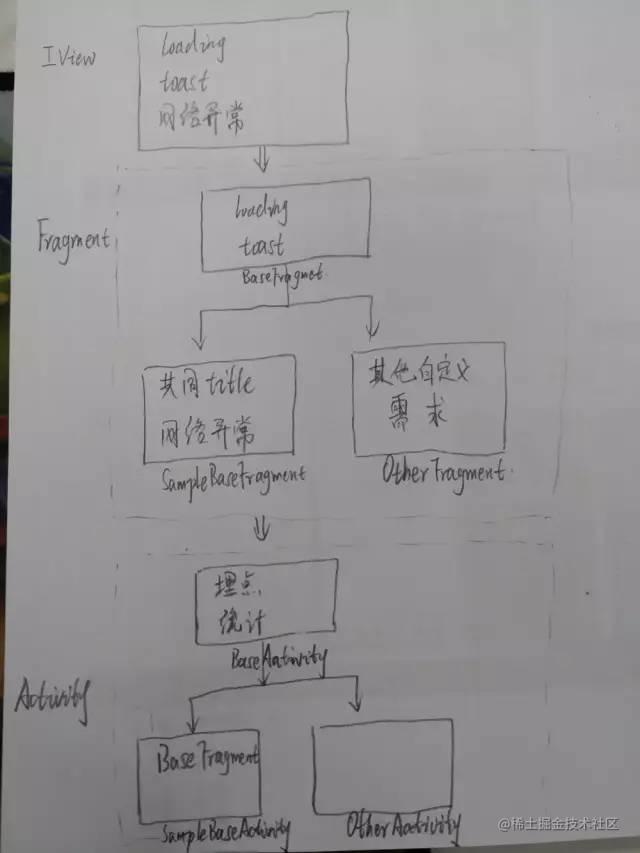 IView
loading
toast
网络异常
Fragment
loading
toast
BaseFragmet
共同title
网络异常
SampleBaseFragment
其他自定义
需求
OtherFragment.
Activity
埋点
统计
BaseActivity
BaseFragment
SampleBaseActivity
OtherActivity
@稀土掘金技术社区